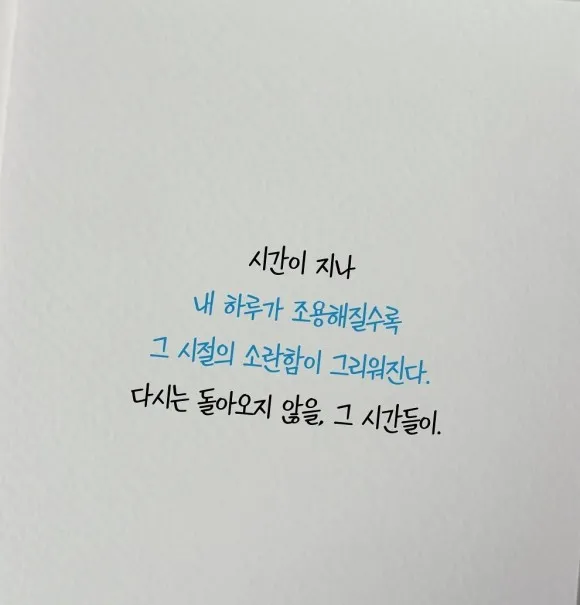 시간이 지나
내 하루가 조용해질수록
그 시절의 소란함이 그리워진다.
다시는 돌아오지 않을, 그 시간들이.